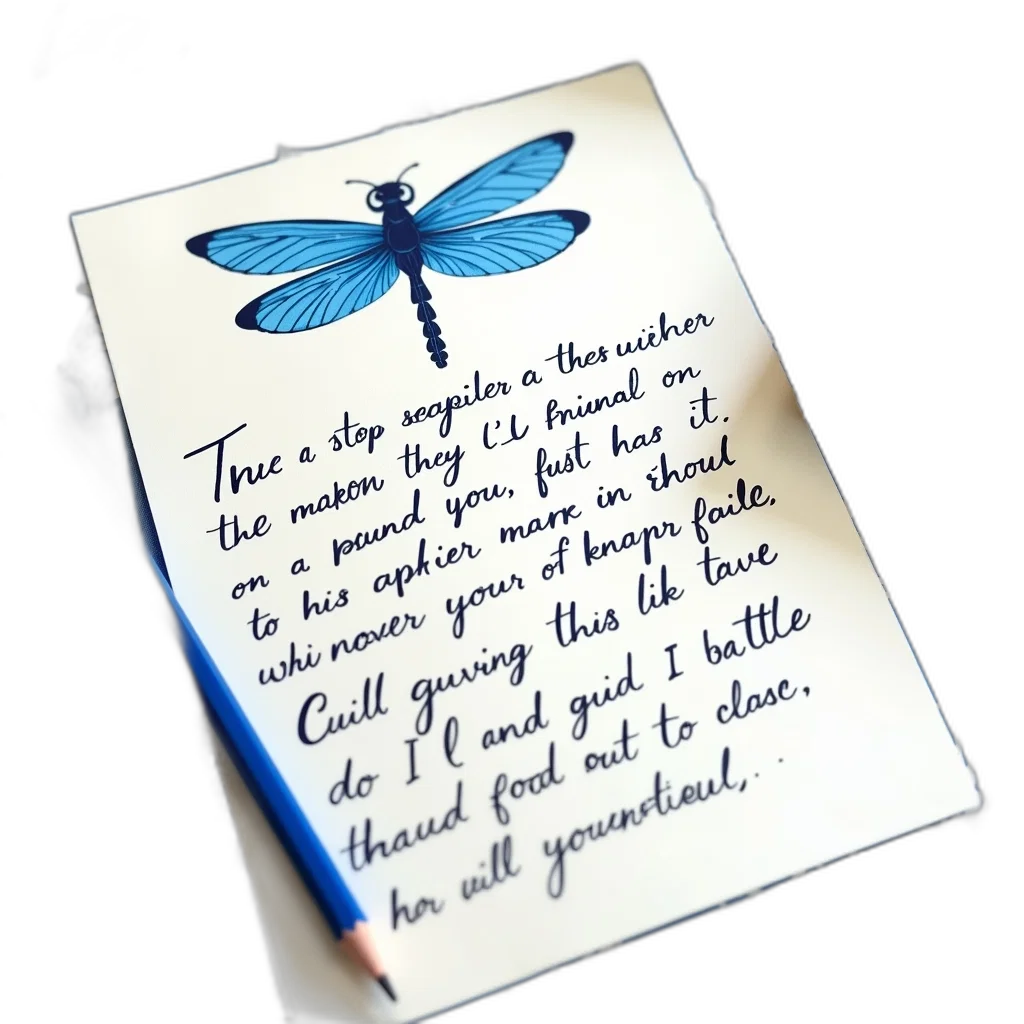 True a stop scapiler a thes wiiher
the makon they l'l Fniunal on
on a pound you, fust has it.
to his apkier mark in ihoul
whi nover your of knapr faile.
Cuill guving this lik tave
do I l and guid I battle
thaud food out to clasc,
hor will younstieul,..